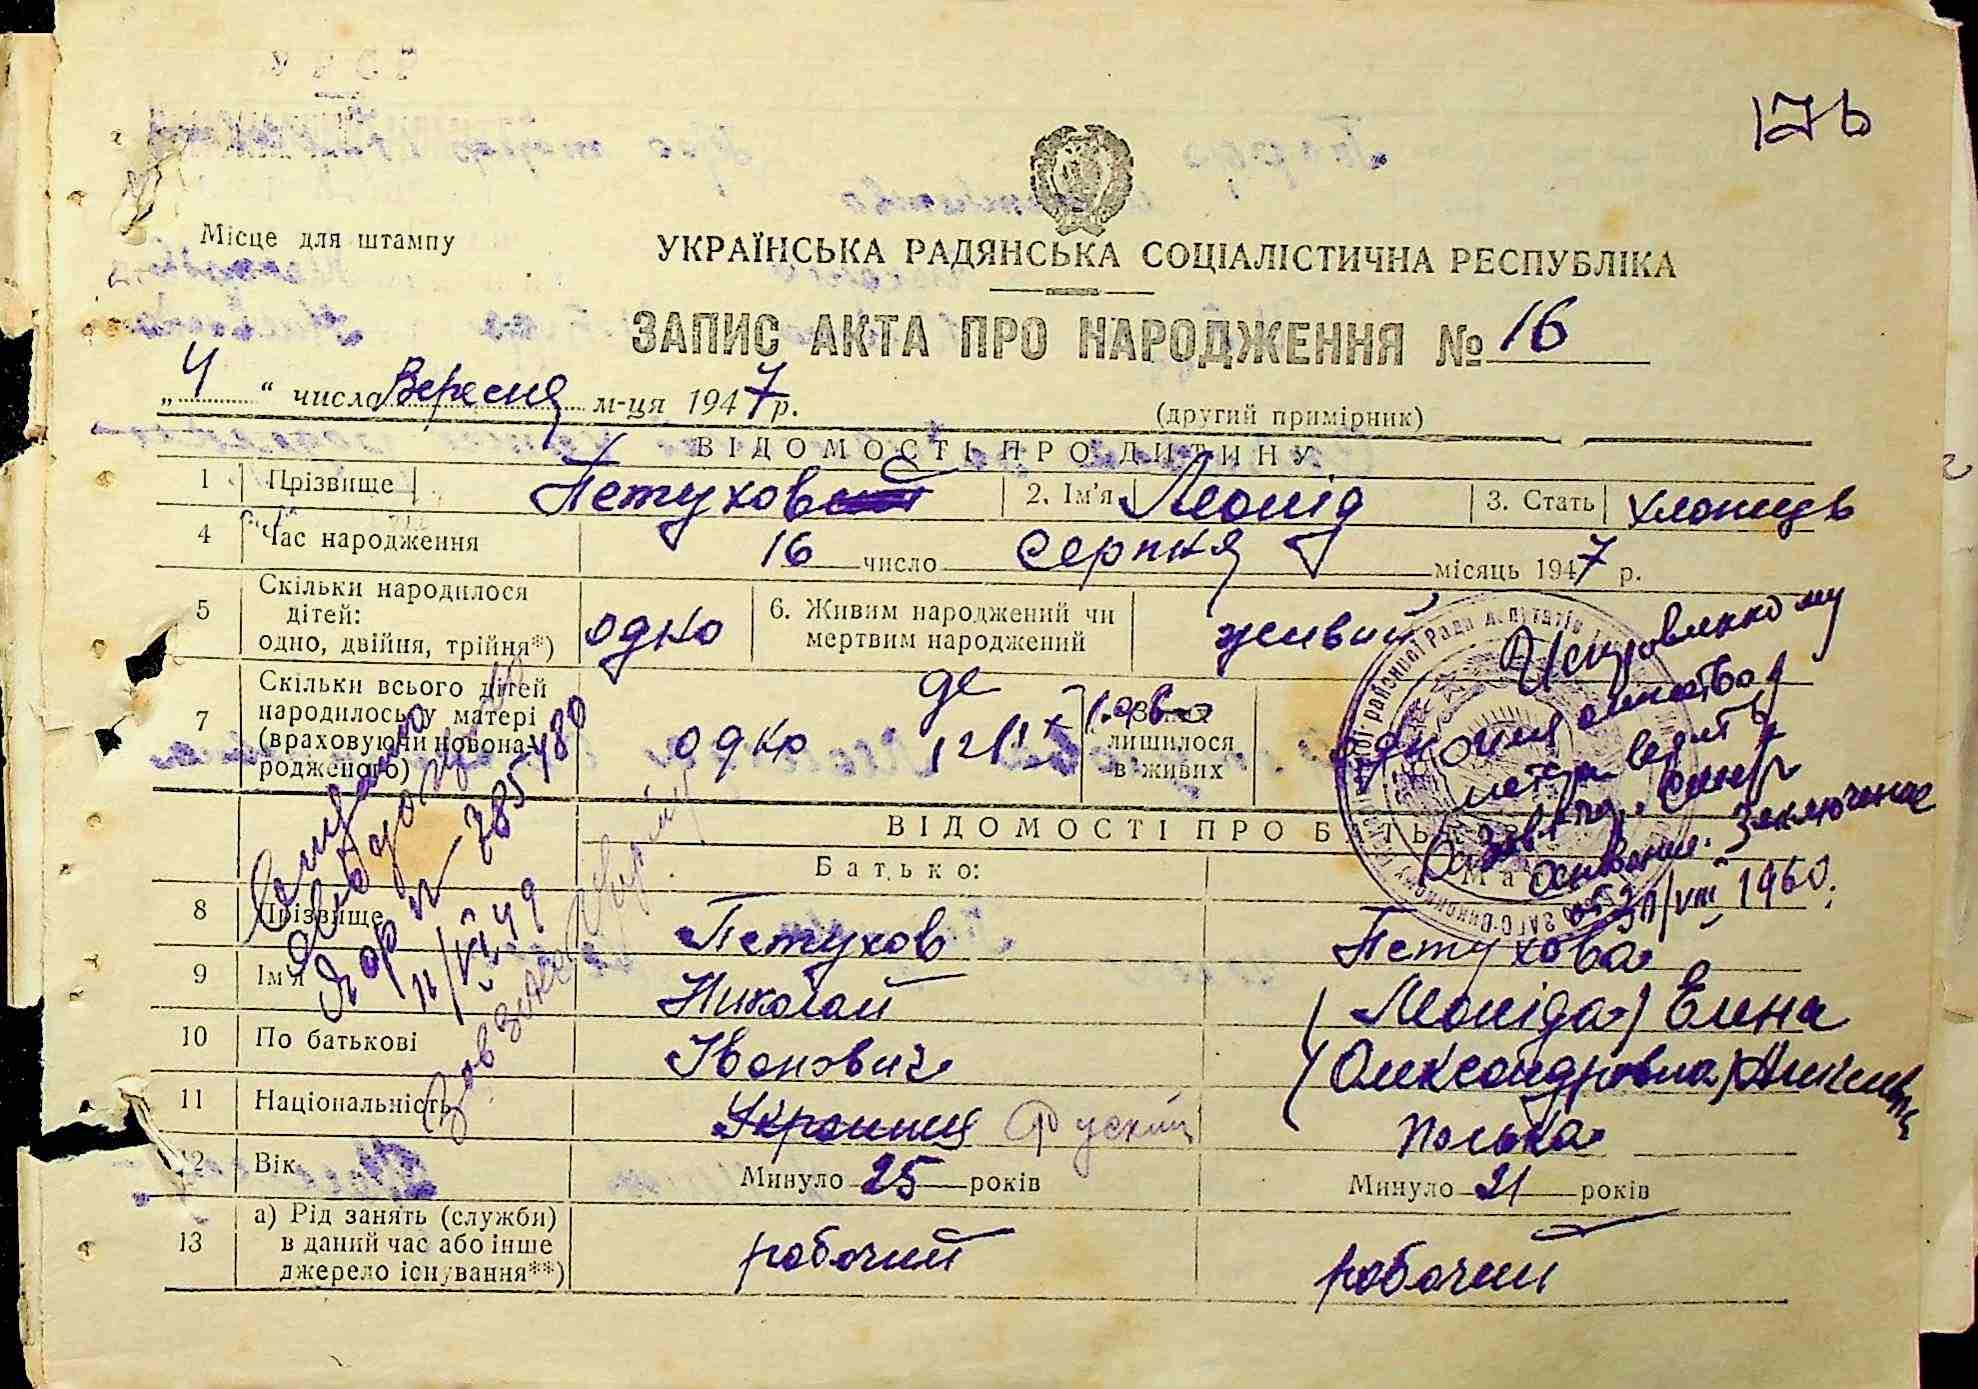 176
Місце для штампу
УКРАЇНСЬКА РАДЯНСЬКА СОЦІАЛІСТИЧНА РЕСПУБЛІКА
ЗАПИС АКТА ПРО НАРОДЖЕННЯ № 16
„ 4 “ числа Вересня м-ця 1947 р.
(другий примірник)
ВІДОМОСТІ ПРО ДИТИНУ
1 Прізвище Петухов 2. Ім'я Леонід 3. Стать хлопець
4 Час народження 16 число серпня місяць 1947 р.
5 Скільки народилося дітей: одно, двійня, трійня*) одно 6. Живим народжений чи мертвим народжений живий
7 Скільки всього дітей народилось у матері (враховуючи новонародженого) одно
лишилося в живих
Исправленному
отчество
матери верить
Зав.
Основание: Заключение
1960.
ВІДОМОСТІ ПРО БАТЬ
Батько:
Ма
8 Прізвище Петухов Петухова
9 Ім'я Николай (Леоніда) Елена
10 По батькові Іванович (Олександровна)
11 Національність Украинця Руский Полька
12 Вік Минуло 25 років Минуло 21 років
13 а) Рід занять (служби) в даний час або інше джерело існування**) робочий робочий
385480
11/VI 49